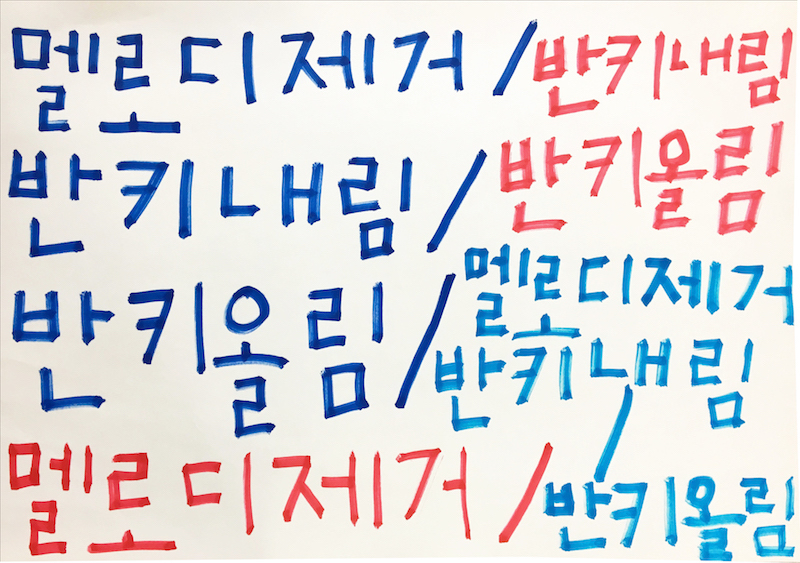 멜로디제거 / 반키내림
반키내림 / 반키올림
반키올림 / 멜로디제거
반키내림 /
멜로디제거 / 반키올림